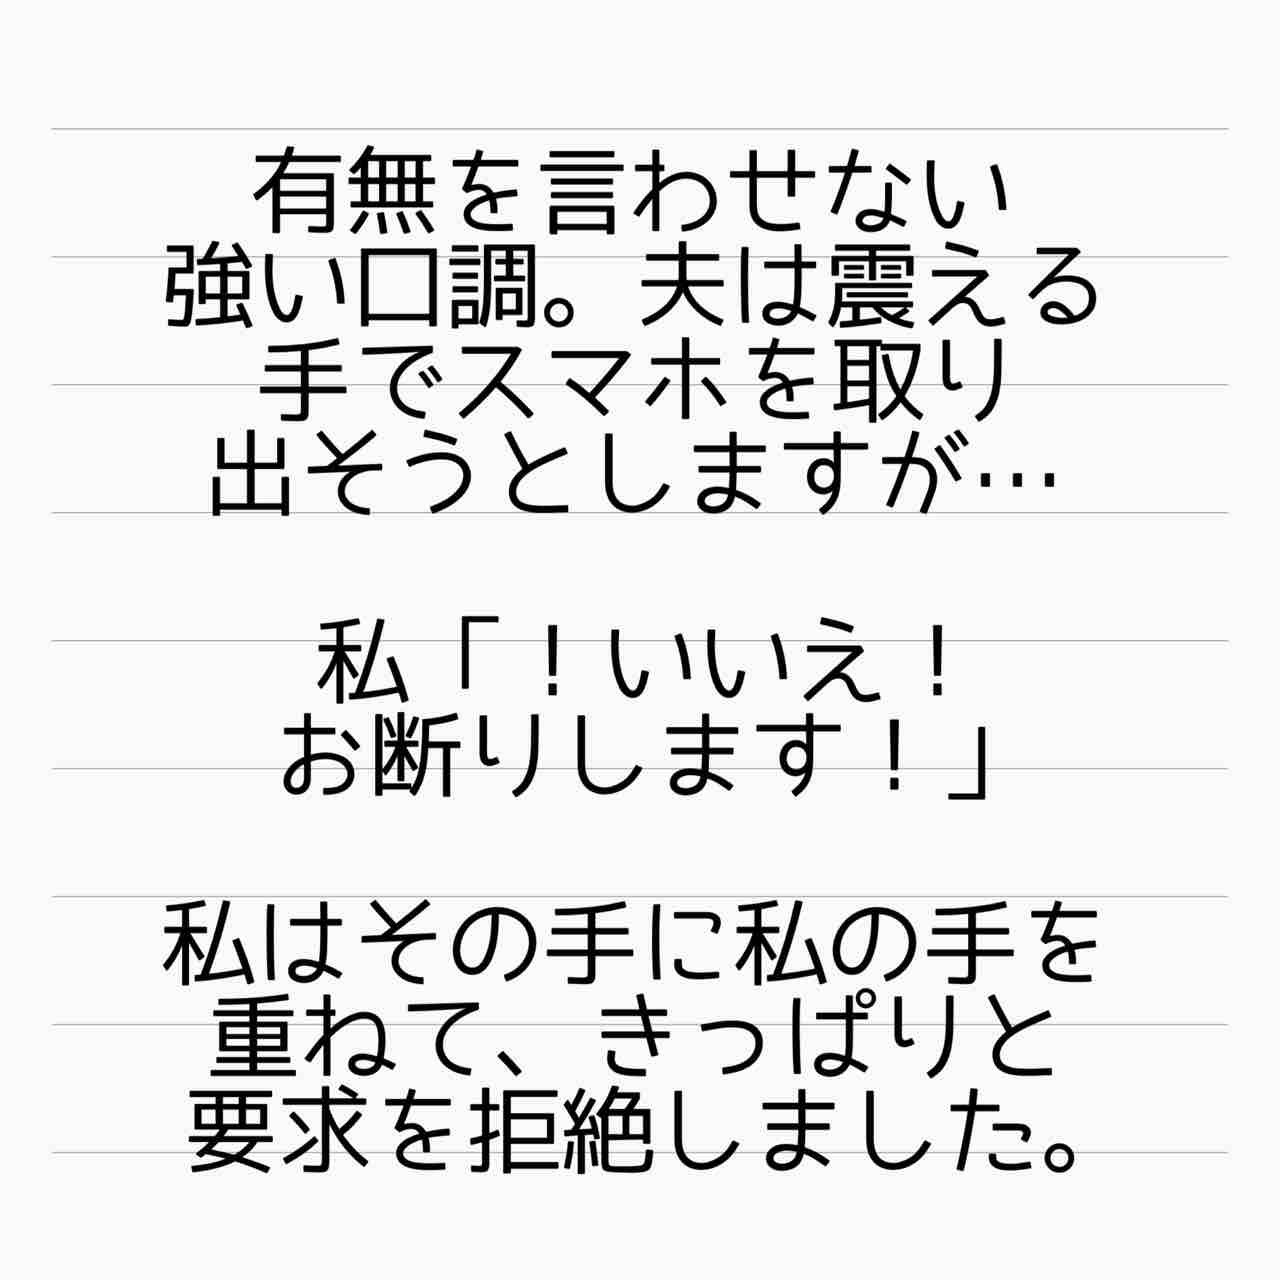 有無を言わせない
強い口調。夫は震える
手でスマホを取り
出そうとしますが…
私「！いいえ！
お断りします！」
私はその手に私の手を
重ねて、きっぱりと
要求を拒絶しました。